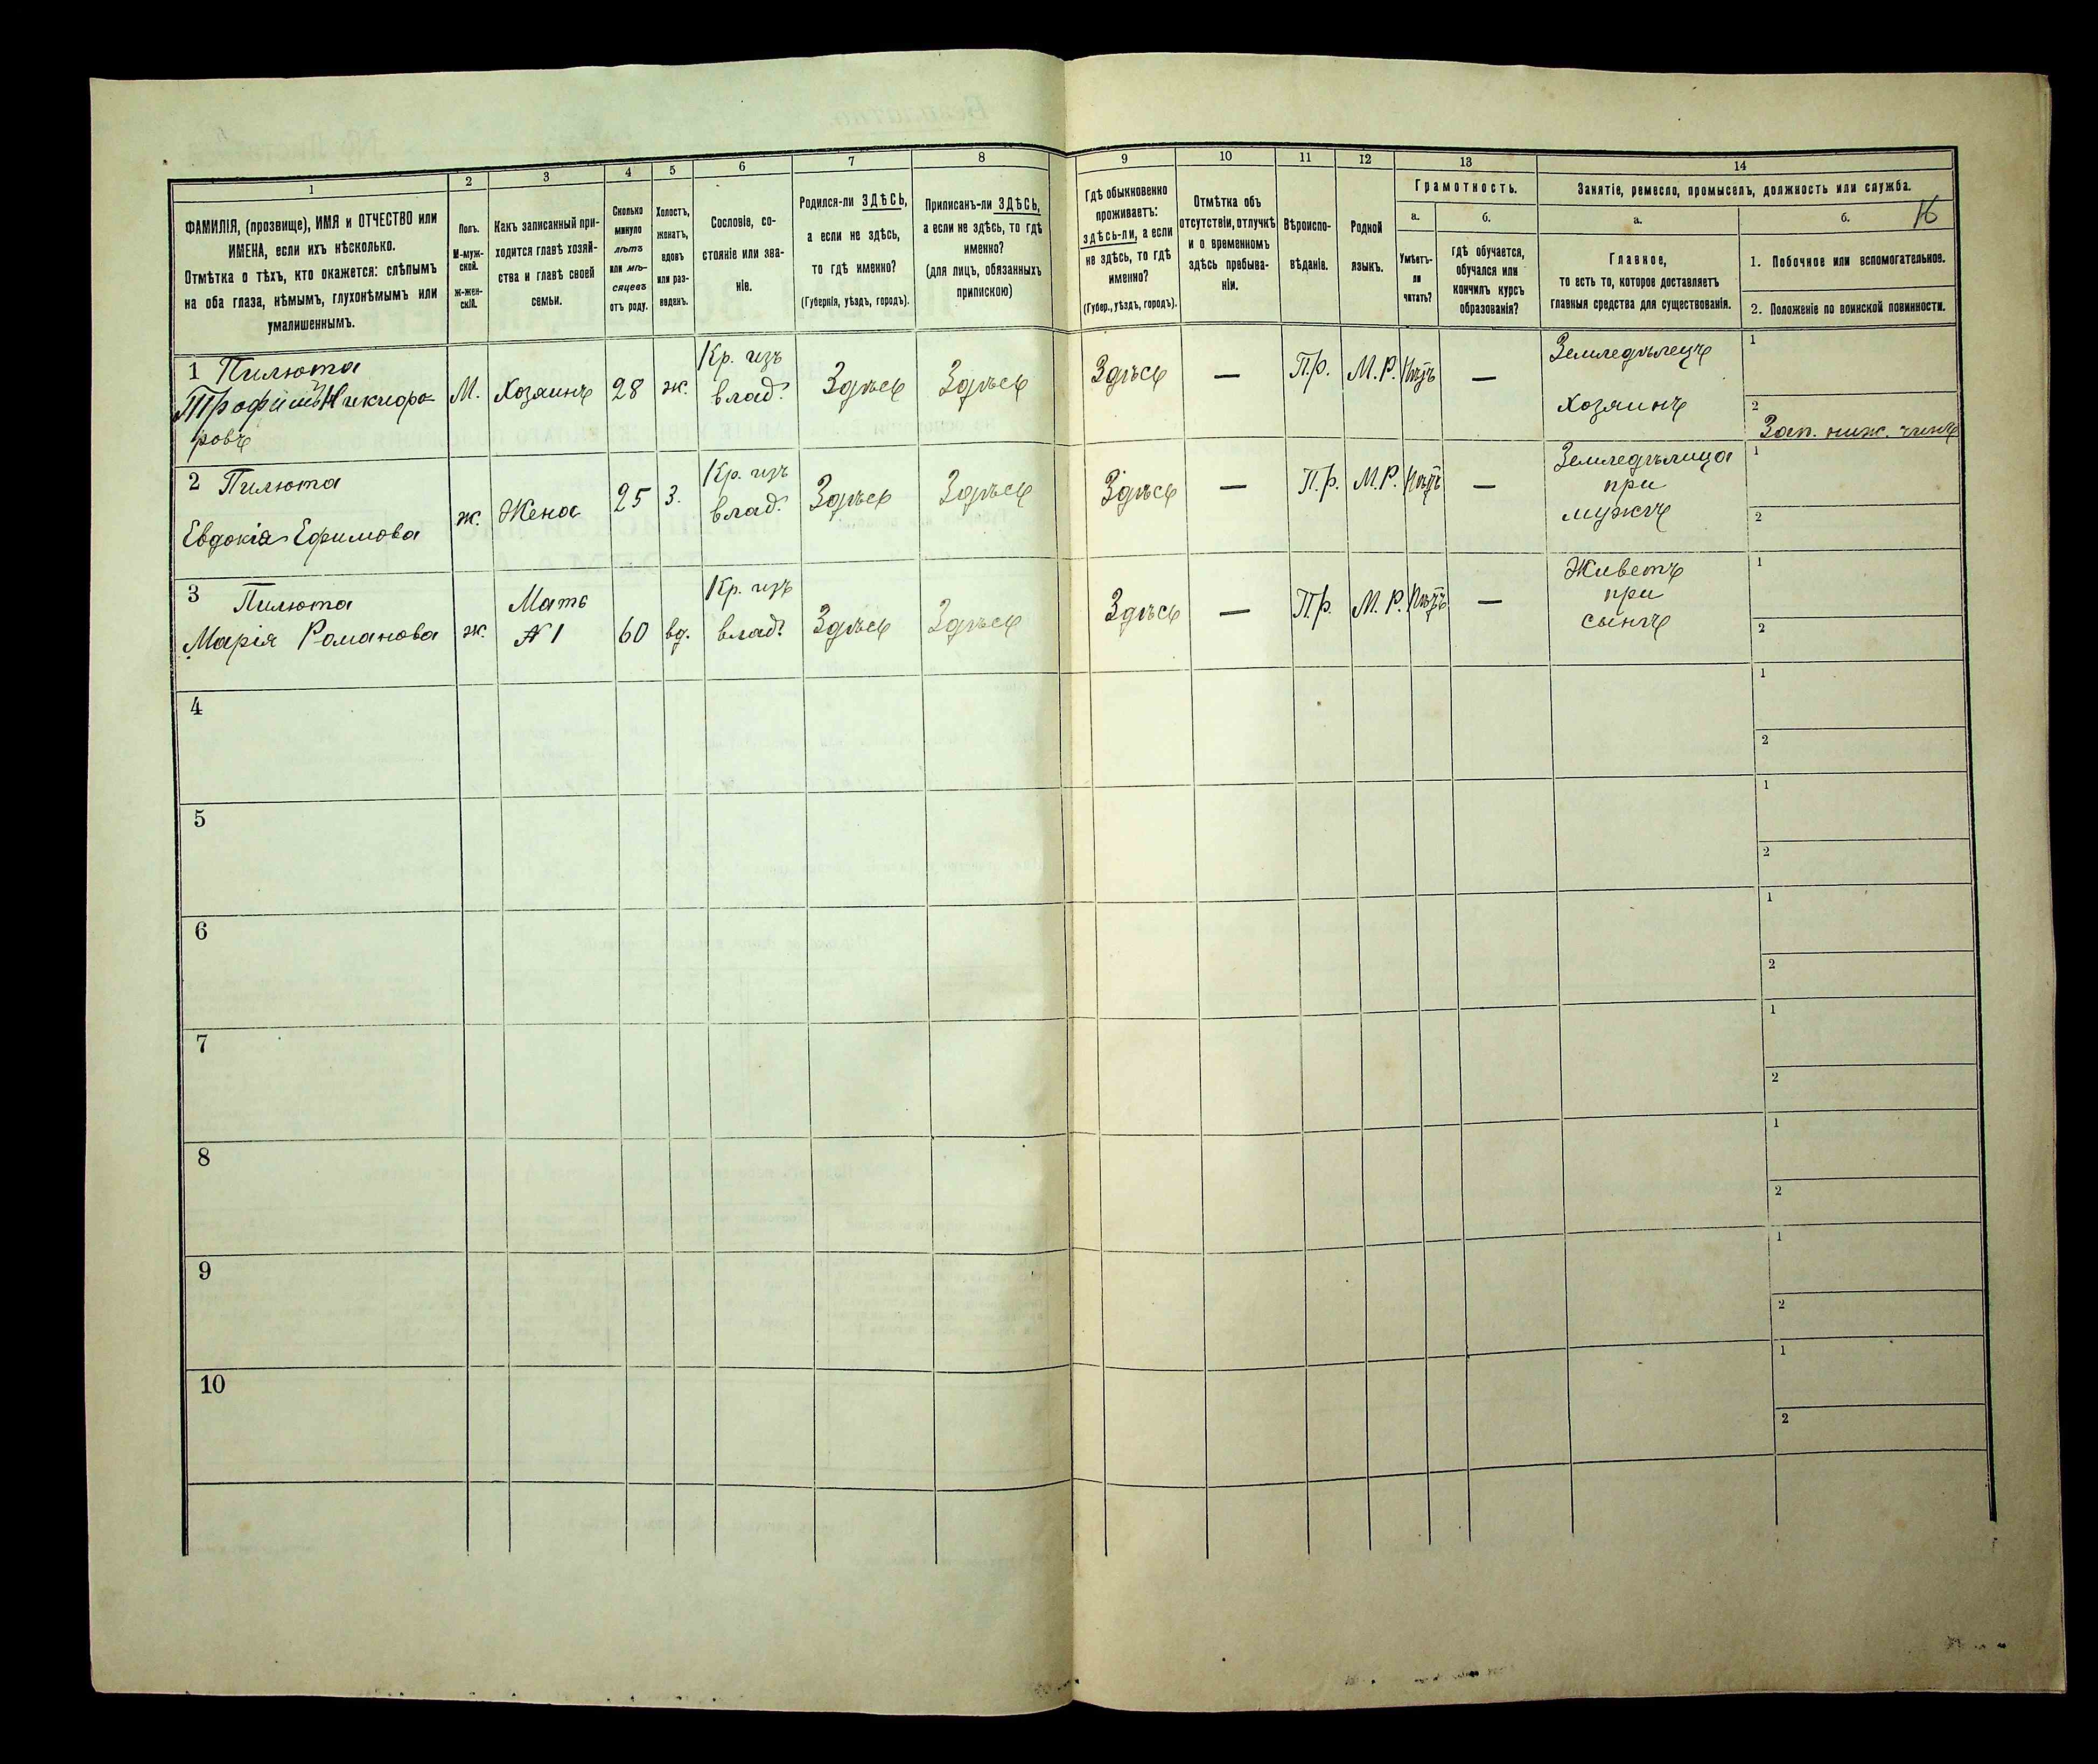 16
1
2
3
4
5
6
7
8
ФАМИЛІЯ, (прозвище), ИМЯ и ОТЧЕСТВО или
ИМЕНА, если ихъ нѣсколько.
Отмѣтка о тѣхъ, кто окажется: слѣпымъ
на оба глаза, нѣмымъ, глухонѣмымъ или
умалишеннымъ.
Полъ.
М-муж-
ской.
ж-жен-
скій.
Какъ записанный при-
ходится главѣ хозяй-
ства и главѣ своей
семьи.
Сколько
минуло
лѣтъ
или мѣ-
сяцевъ
отъ роду.
Холостъ,
женатъ,
вдовъ
или раз-
веденъ.
Сословіе, со-
стояніе или зва-
ніе.
Родился-ли ЗДѢСЬ,
а если не здѣсь,
то гдѣ именно?
(Губернія, уѣздъ, городъ).
Приписанъ-ли ЗДѢСЬ,
а если не здѣсь, то гдѣ
именно?
(для лицъ, обязанныхъ
припискою)
9
10
11
12
13
14
Гдѣ обыкновенно
проживаетъ:
здѣсь-ли, а если
не здѣсь, то гдѣ
именно?
(Губер., уѣздъ, городъ).
Отмѣтка объ
отсутствіи, отлучкѣ
и о временномъ
здѣсь пребыва-
ніи.
Вѣроиспо-
вѣданіе.
Родной
языкъ.
Грамотность.
а.
б.
Умѣетъ-
ли
читать?
гдѣ обучается,
обучался или
кончилъ курсъ
образованія?
Занятіе, ремесло, промыселъ, должность или служба.
а.
б.
Главное,
то есть то, которое доставляетъ
главныя средства для существованія.
1. Побочное или вспомогательное.
2. Положеніе по воинской повинности.
1 Пилюта
Трофимъ Никифо-
ровъ
М.
Хозяинъ
28
ж.
Кр. изъ
влад.
Здѣсь
Здѣсь
Здѣсь
—
Пр.
М.Р.
Нѣтъ
—
Земледѣлецъ
Хозяинъ
1
2
Зап. ниж. чинъ
2 Пилюта
Евдокія Ефимова
ж.
Жена
25
З.
Кр. изъ
влад.
Здѣсь
Здѣсь
Здѣсь
—
П.р.
М.Р.
Нѣтъ
—
Земледѣлица
при
мужѣ
1
2
3 Пилюта
Марія Романова
ж.
Мать
№ 1
60
вд.
Кр. изъ
влад.
Здѣсь
Здѣсь
Здѣсь
—
Пр.
М.Р.
Нѣтъ
—
Живетъ
при
сынѣ
1
2
4
1
2
5
1
2
6
1
2
7
1
2
8
1
2
9
1
2
10
1
2